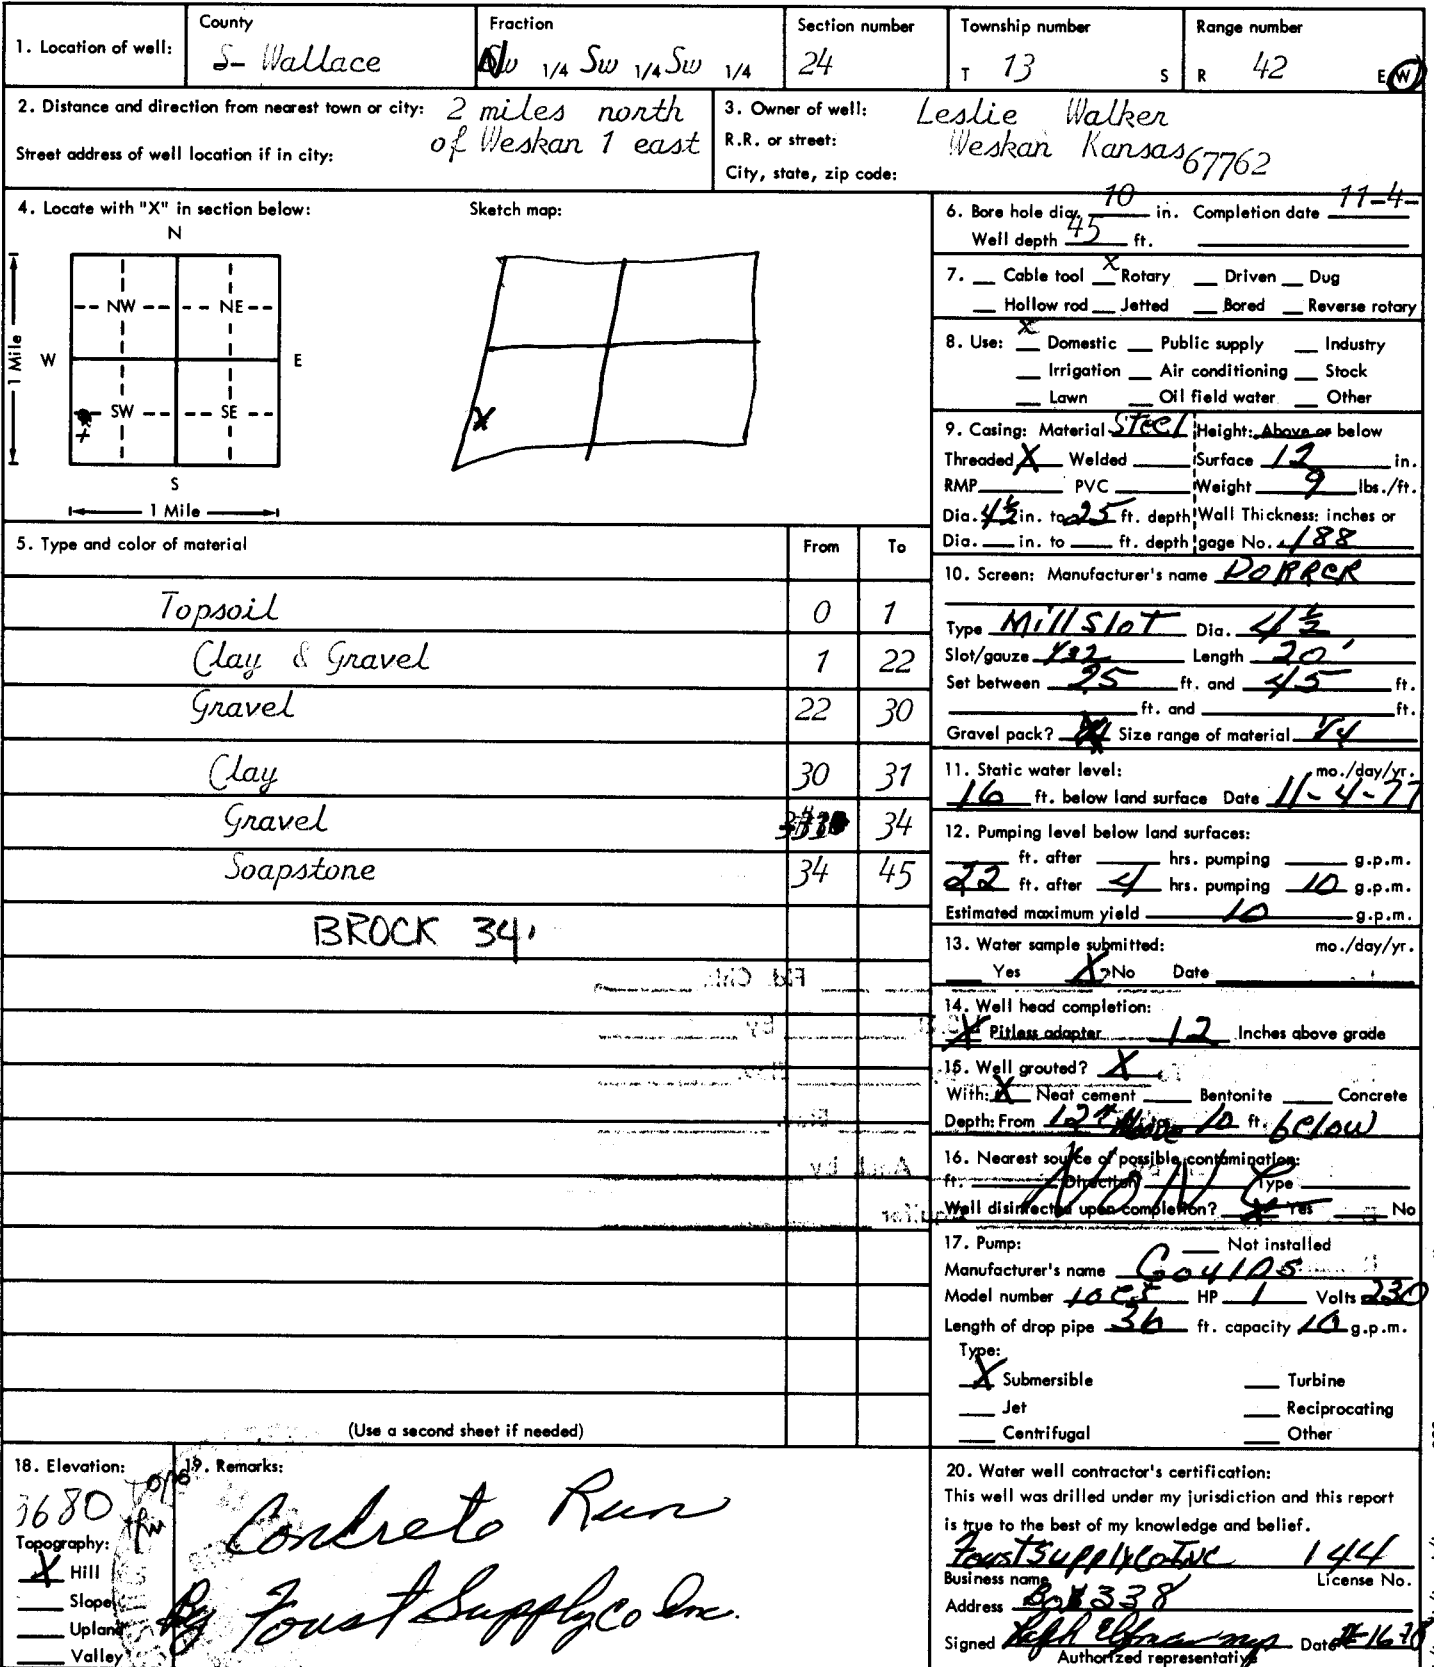 1. Location of well: County S- Wallace Fraction SW 1/4 SW 1/4 SW 1/4 Section number 24 Township number T 13 S Range number R 42 E W
2. Distance and direction from nearest town or city: 2 miles north of Weskan 1 east
Street address of well location if in city:
3. Owner of well: Leslie Walker
R.R. or street: Weskan Kansas 67762
City, state, zip code:
4. Locate with "X" in section below:
N
NW NE
W E
SW SE
S
1 Mile
1 Mile
Sketch map:
X
5. Type and color of material From To
Topsoil 0 1
Clay & Gravel 1 22
Gravel 22 30
Clay 30 31
Gravel 34
Soapstone 34 45
BROCK 34
(Use a second sheet if needed)
6. Bore hole dia. 10 in. Completion date 11-4-
Well depth 45 ft.
7. Cable tool X Rotary Driven Dug
Hollow rod Jetted Bored Reverse rotary
8. Use: X Domestic Public supply Industry
Irrigation Air conditioning Stock
Lawn Oil field water Other
9. Casing: Material Steel Height: Above or below
Threaded X Welded Surface 12 in.
RMP PVC Weight 9 lbs./ft.
Dia. 4½ in. to 25 ft. depth Wall Thickness: inches or
Dia. in. to ft. depth gage No. .188
10. Screen: Manufacturer's name DORRER
Type Mill Slot Dia. 4½
Slot/gauze 1/32 Length 20'
Set between 25 ft. and 45 ft.
ft. and ft.
Gravel pack? Size range of material 1/4
11. Static water level: mo./day/yr.
16 ft. below land surface Date 11-4-77
12. Pumping level below land surfaces:
ft. after hrs. pumping g.p.m.
22 ft. after 4 hrs. pumping 10 g.p.m.
Estimated maximum yield 10 g.p.m.
13. Water sample submitted: mo./day/yr.
Yes X No Date
14. Well head completion:
X Pitless adapter 12 Inches above grade
15. Well grouted? X
With: X Neat cement Bentonite Concrete
Depth: From 12" Above 10 ft. below
16. Nearest source of possible contamination:
ft. Direction Type
NONE
Well disinfected upon completion? X Yes No
17. Pump: Not installed
Manufacturer's name Goulds
Model number HP 1 Volts 230
Length of drop pipe 36 ft. capacity 10 g.p.m.
Type:
X Submersible Turbine
Jet Reciprocating
Centrifugal Other
18. Elevation:
3680
Topography:
X Hill
Slope
Upland
Valley
19. Remarks:
Concrete Run
By Foust Supply Co Inc.
20. Water well contractor's certification:
This well was drilled under my jurisdiction and this report
is true to the best of my knowledge and belief.
Foust Supply Co Inc 144
Business name License No.
Address Box 338
Signed Date
Authorized representative